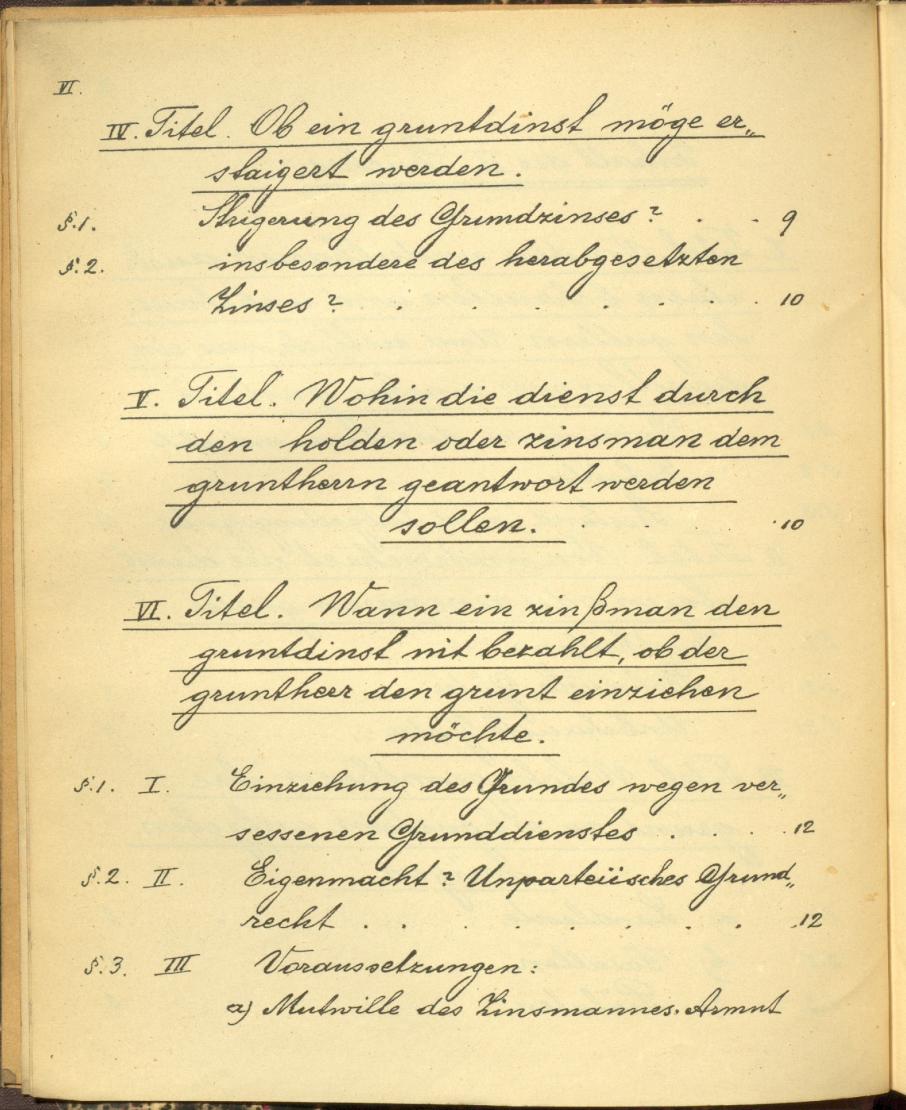 VI.
IV. Titel. Ob ein gruntdinst möge er„
staigert werden.
§.1. Steigerung des Grundzinses? . . 9
§.2. insbesondere des herabgesetzten
Zinses? . . . . . . 10
V. Titel. Wohin die dienst durch
den holden oder zinsman dem
gruntherrn geantwort werden
sollen. . . 10
VI. Titel. Wann ein zinßman den
gruntdinst nit bezahlt, ob der
gruntherr den grunt einziehen
möchte.
§.1. I. Einziehung des Grundes wegen ver„
sessenen Grunddienstes . . . 12
§.2. II. Eigenmacht? Unparteiisches Grund„
recht . . . . . . . . 12
§.3. III Voraussetzungen:
a) Mutwille des Zinsmannes. Armut